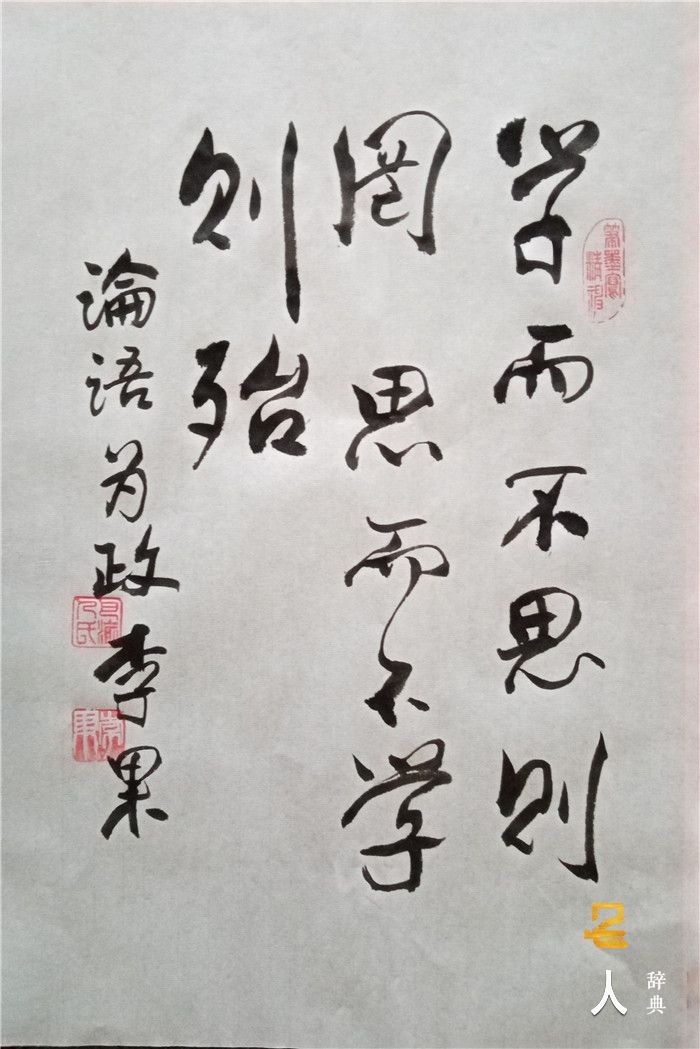 学而不思则
罔思而不学
则殆
論语为政李果
名人辞典